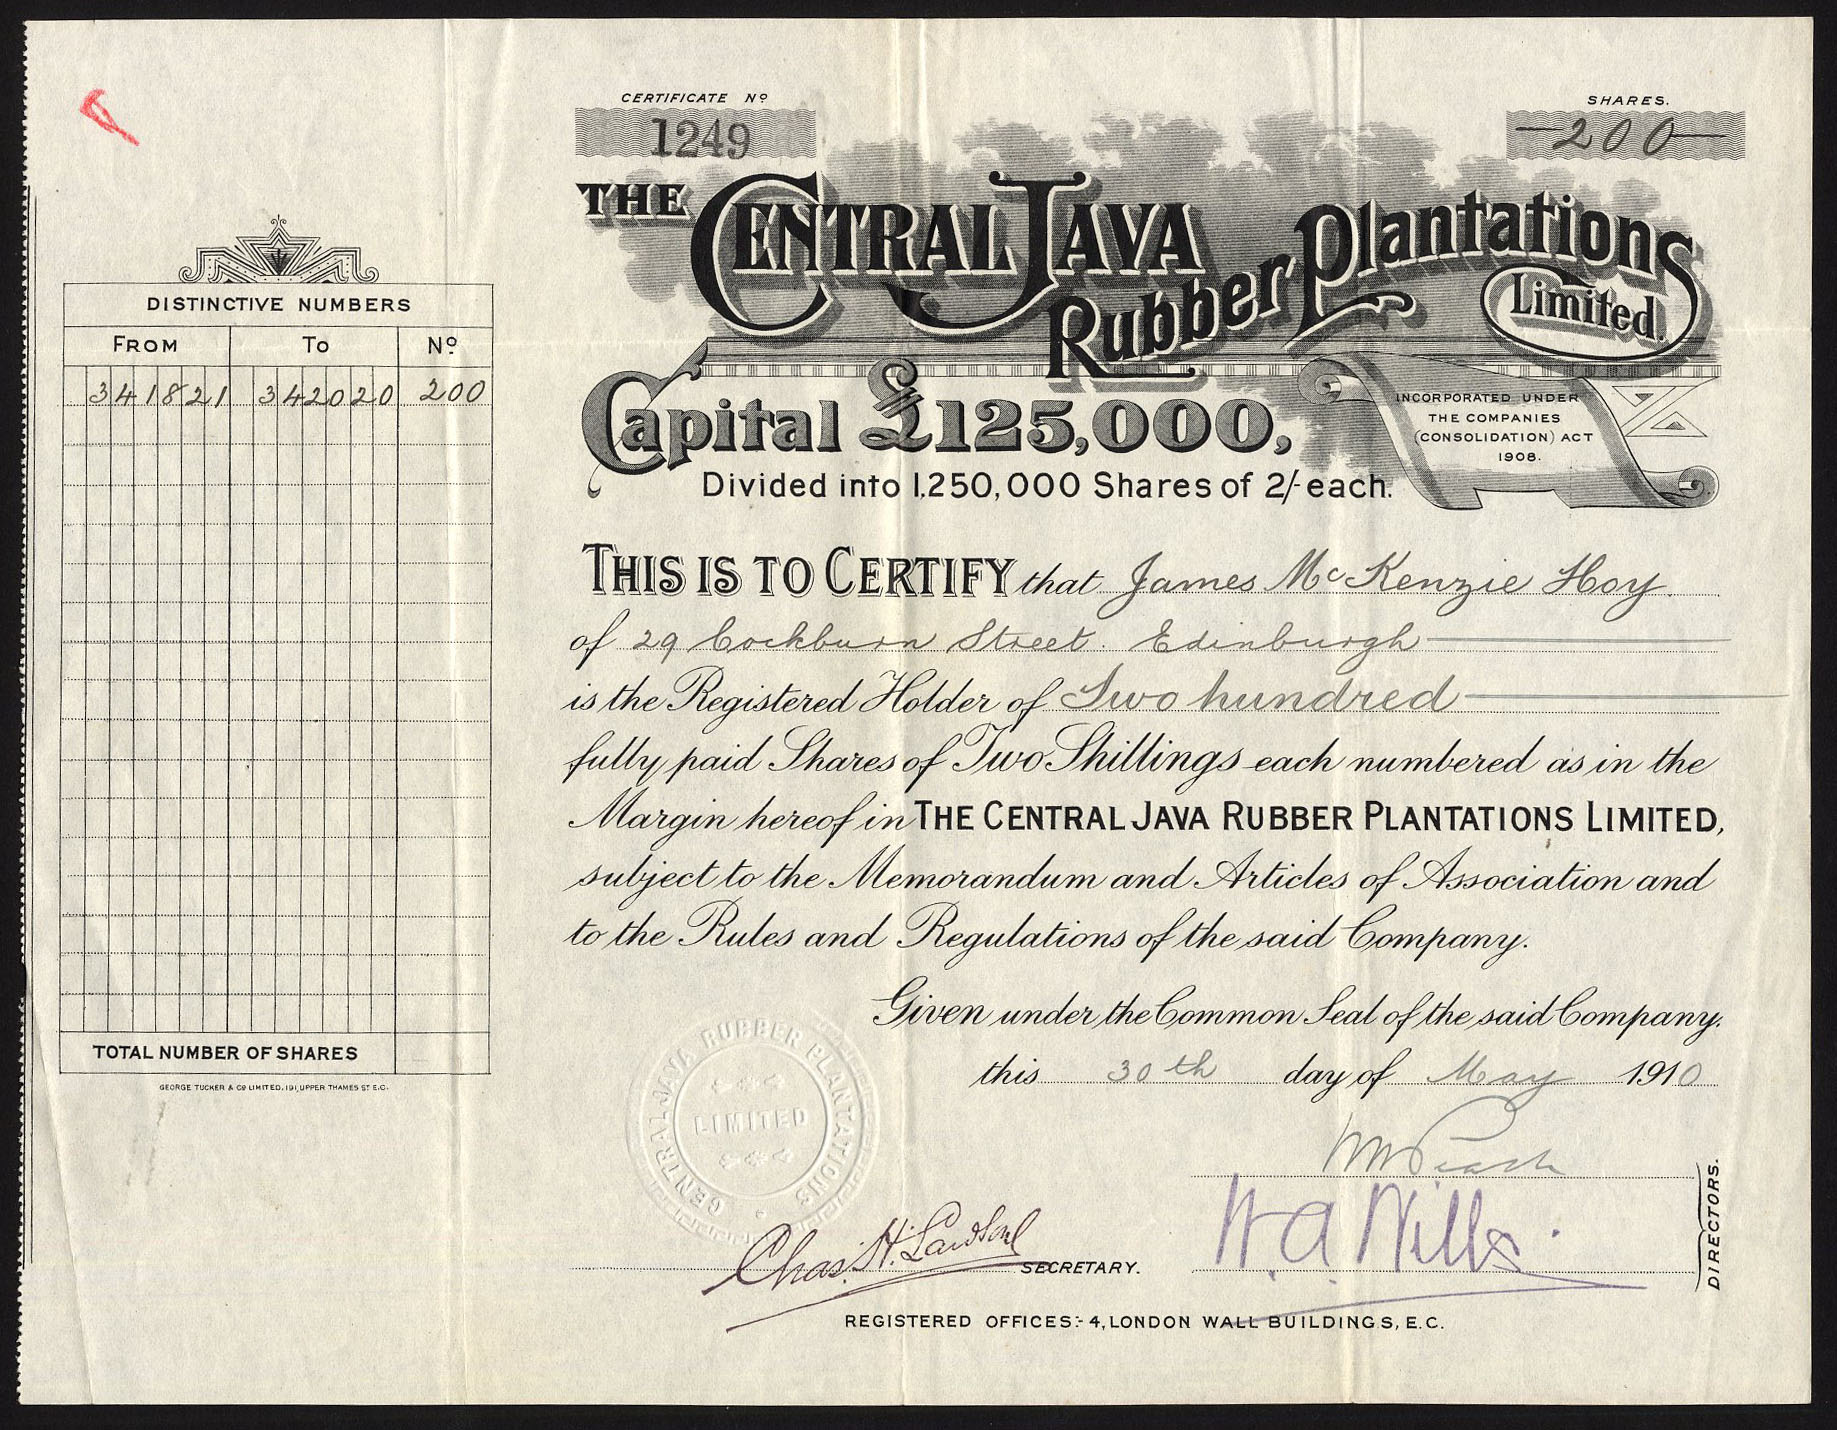 CERTIFICATE Nº
1249
SHARES.
200
THE CENTRAL JAVA Rubber Plantations Limited.
Capital £125,000,
Divided into 1,250,000 Shares of 2/- each.
INCORPORATED UNDER
THE COMPANIES
(CONSOLIDATION) ACT
1908.
DISTINCTIVE NUMBERS
FROM TO Nº
341821 342020 200
TOTAL NUMBER OF SHARES
GEORGE TUCKER & Cº LIMITED, 191, UPPER THAMES ST E.C.
THIS IS TO CERTIFY that James McKenzie Hoy
of 29 Cockburn Street. Edinburgh
is the Registered Holder of Two hundred
fully paid Shares of Two Shillings each numbered as in the
Margin hereof in THE CENTRAL JAVA RUBBER PLANTATIONS LIMITED,
subject to the Memorandum and Articles of Association and
to the Rules and Regulations of the said Company.
Given under the Common Seal of the said Company.
this 30th day of May 1910
CENTRAL JAVA RUBBER PLANTATIONS
LIMITED
W. A. Wills
DIRECTORS.
Chas. H. SECRETARY.
REGISTERED OFFICES:- 4, LONDON WALL BUILDINGS, E.C.